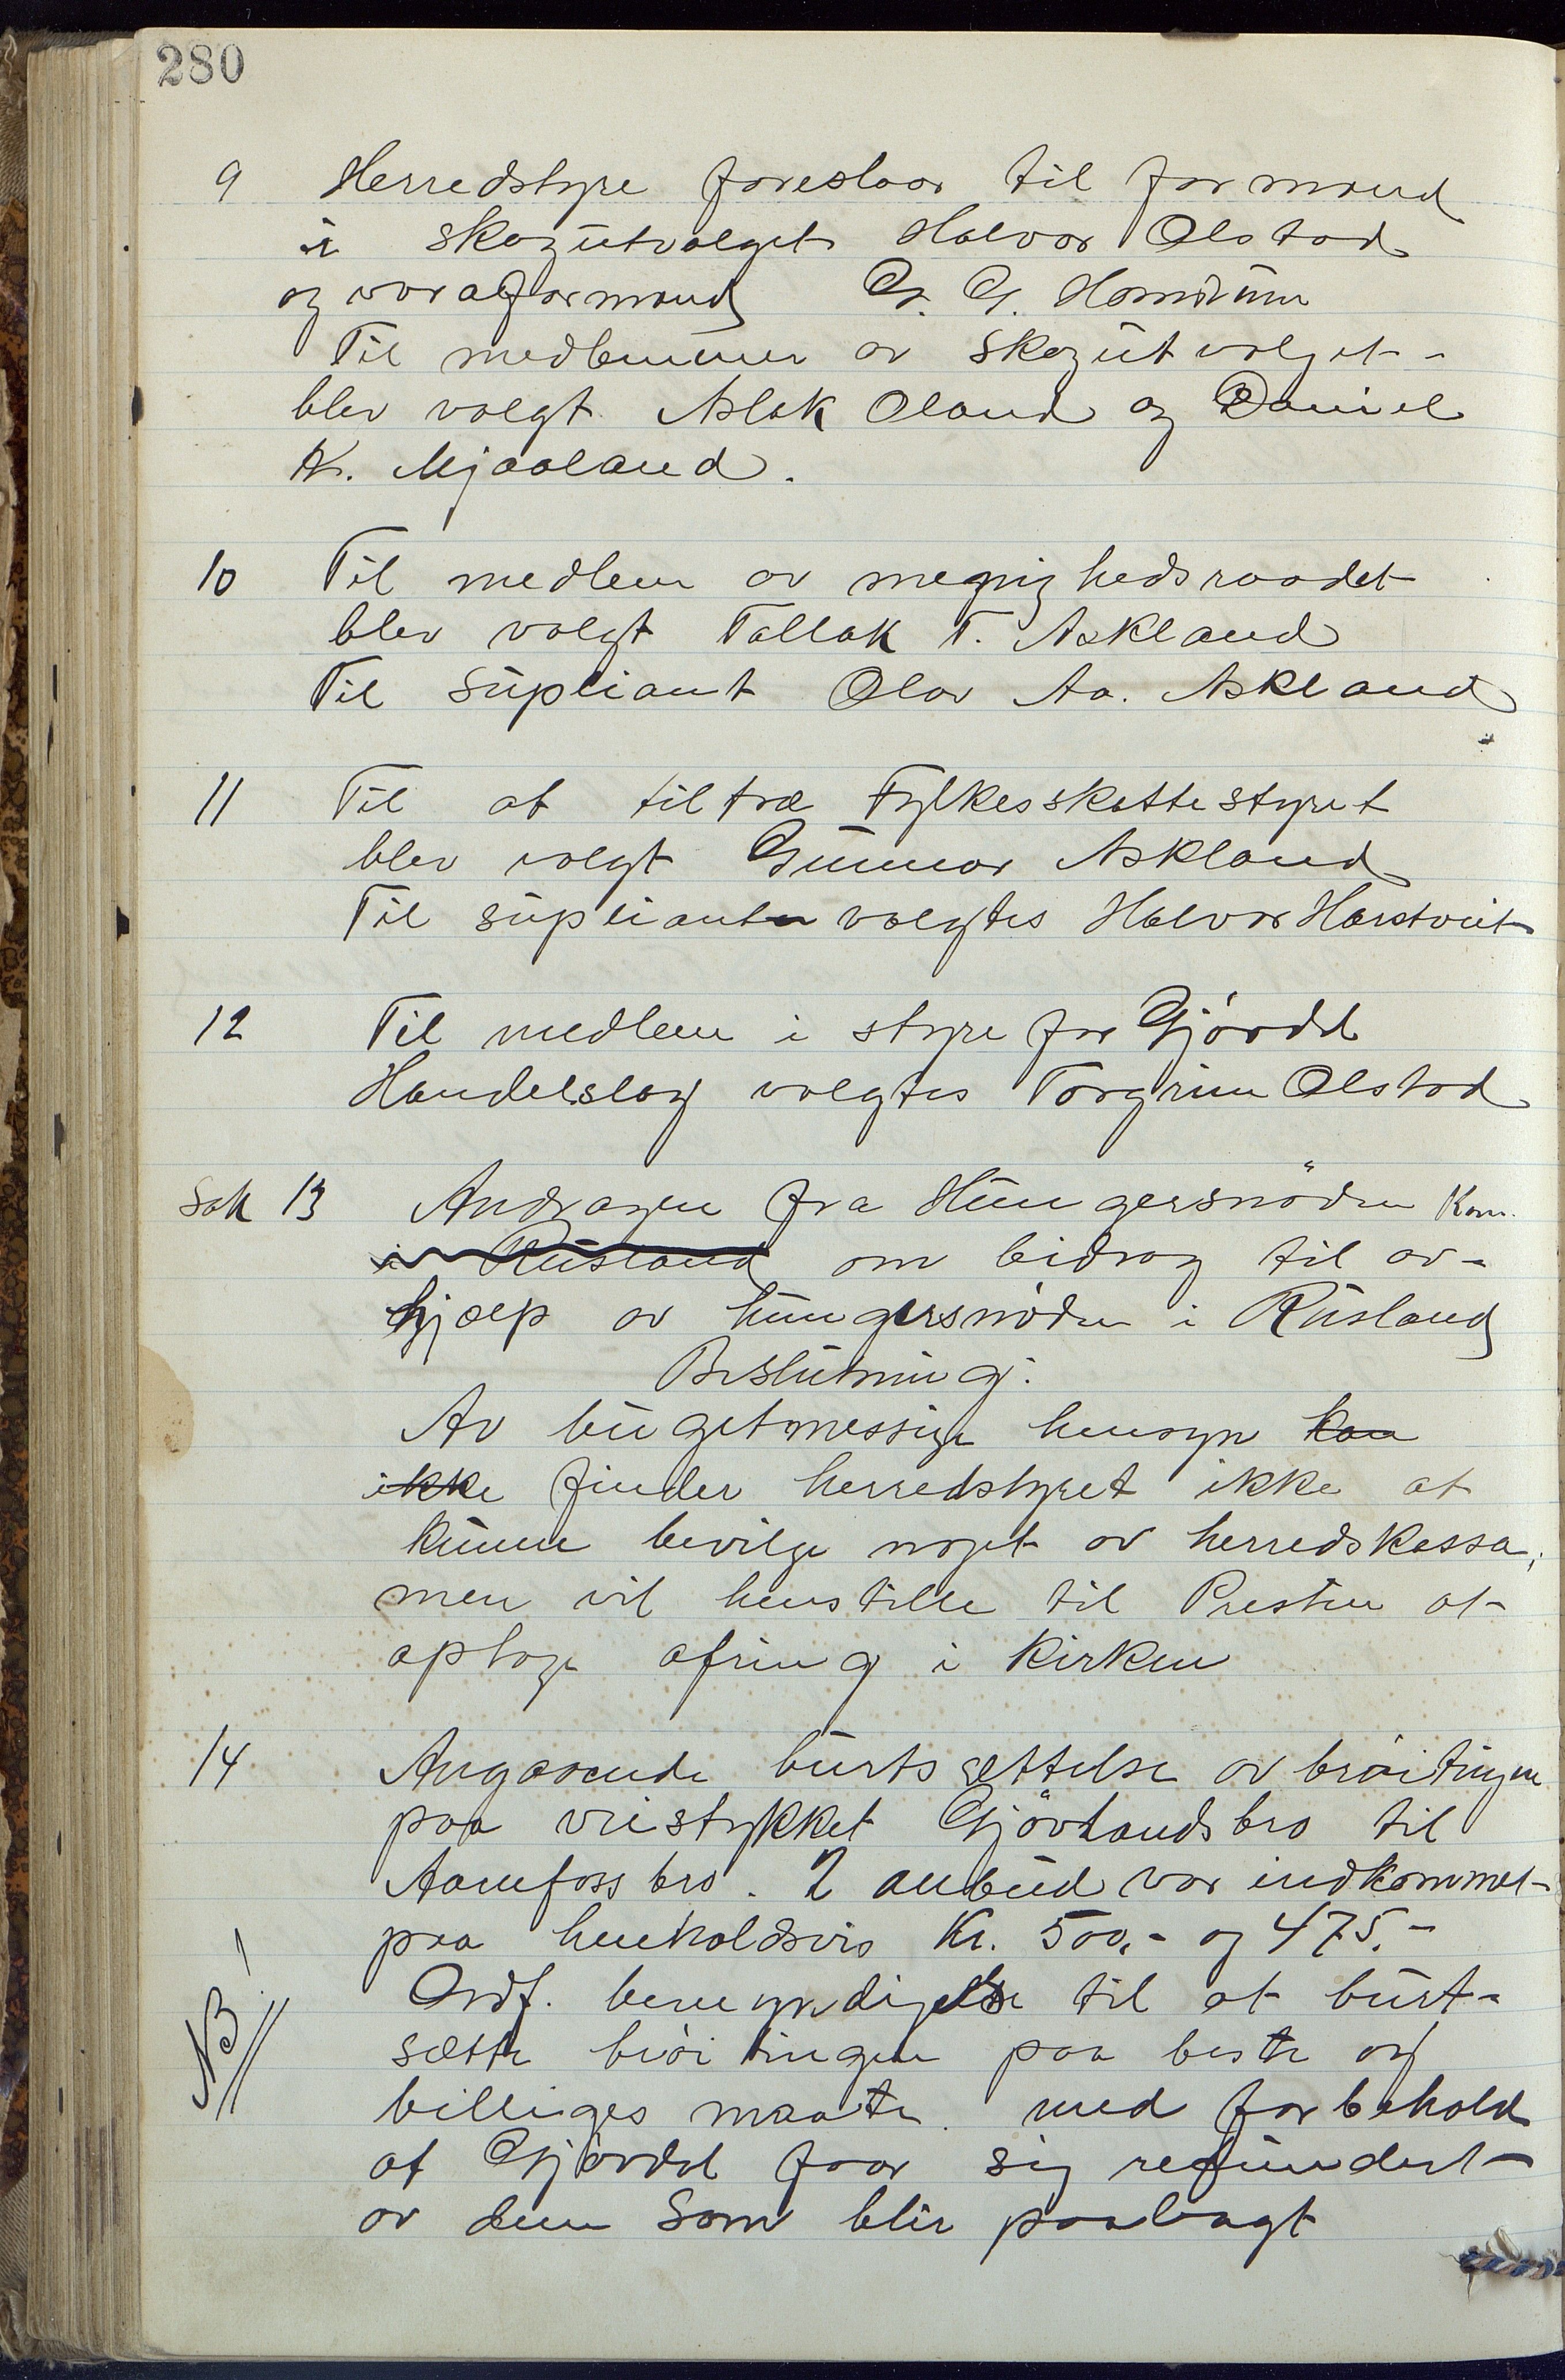 280
9 Herredstyre foreslaar til formand
i skogutvalget Halvor Olstad
og varaformand G. G. Homdrum
Til medlemmer av skogutvalget
blev valgt Aslak Oland og Daniel
K. Mjaaland.
10 Til medlem av megnighedsraadet
blev valgt Tallak T. Askland
Til supliant Olav Aa. Askland
11 Til at tiltræ Fylkesskattestyret
blev valgt Gunnar Askland
Til supliant valgtes Halvor Harstveit
12 Til medlem i styre for Gjøvdl
Handelslag valgtes Torgrim Olstad
Sak 13 Andragen fra Hungersnöden Kom.
i Rusland om bidrag til av-
hjælp av hungersnöden i Rusland
Beslutning:
Av bugetmessige hensyn kan
ikke finder herredstyret ikke at
kunne bevilge noget av herredskassa,
men vil henstille til Presten at
optage ofring i Kirken
14 Angaaende burtsættelse av brøitingen
paa veistykket Gjøvlandsbro til
Aamfossbro. 2 anbud var indkommet
paa henholdsvis Kr. 500,- og 475.-
NB! Ordf. bemyndigelse til at burt-
sætte brøitingen paa beste og
billiges maate med forbehold
at Gjøvdal faar sig refundert
av dem som blir paalagt